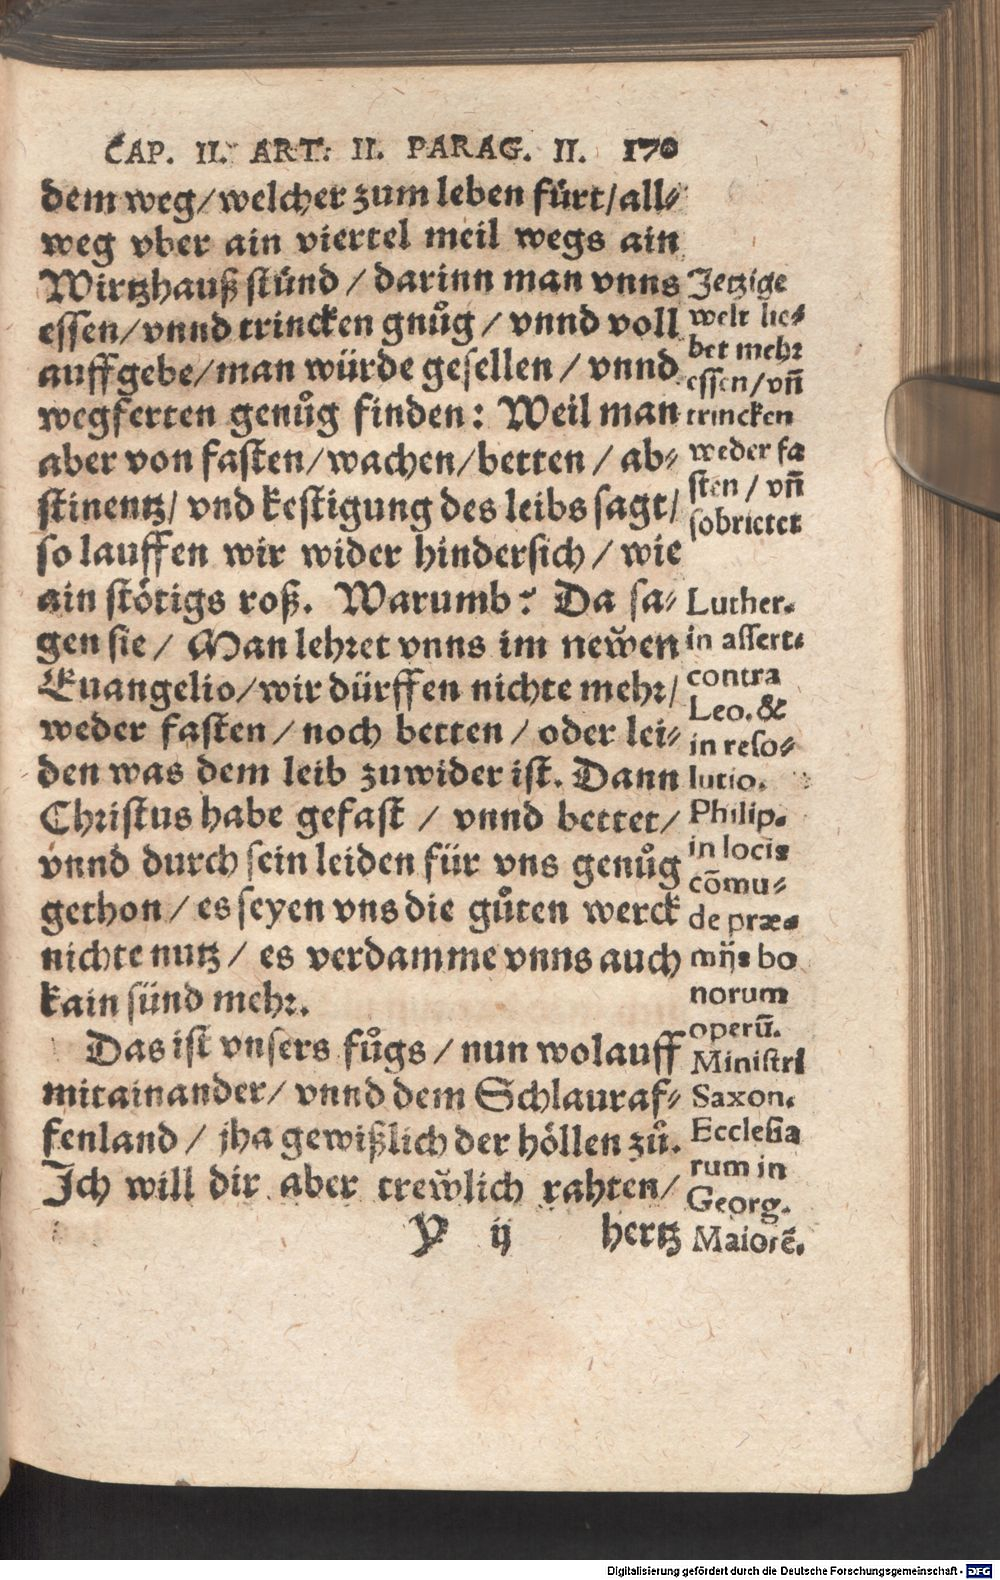 CAP. II. ART. II. PARAG. II. 170
dem weg/welcher zum leben fürt/all⸗
weg vber ain viertel meil wegs ain
Wirtzhauß stünd / darinn man vnns
essen/vnnd trincken gnůg / vnnd voll
auff gebe/man würde gesellen / vnnd
wegferten genůg finden: Weil man
aber von fasten/wachen/betten / ab⸗
stinentz/ vnd kestigung des leibs sagt/
so lauffen wir wider hindersich / wie
ain stötigs roß. Warumb? Da sa⸗
gen sie / Man lehret vnns im newen
Euangelio/wir dürffen nichte mehr/
weder fasten / noch betten / oder lei⸗
den was dem leib zuwider ist. Dann
Christus habe gefast / vnnd bettet/
vnnd durch sein leiden für vns genůg
gethon / es seyen vns die gůten werck
nichte nutz / es verdamme vnns auch
kain sünd mehr.
Das ist vnsers fůgs / nun wolauff
mitainander/ vnnd dem Schlauraf⸗
fenland / jha gewißlich der höllen zů.
Ich will dir aber trewlich rahten/
Y ij hertz
Jetzige
welt lie⸗
bet mehr
essen/vñ
trincken
weder fa
sten / vñ
sobrietet
Luther.
in assert⸗
contra
Leo. &
in reso⸗
lutio.
Philip.
in locis
cõmu⸗
de præ⸗
mijs bo
norum
operū.
Ministri
Saxon.
Ecclesia
rum in
Georg.
Maiorē.
Digitalisierung gefördert durch die Deutsche Forschungsgemeinschaft - DFG